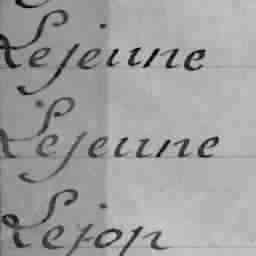 Lejeune
Lejeune
Lejop